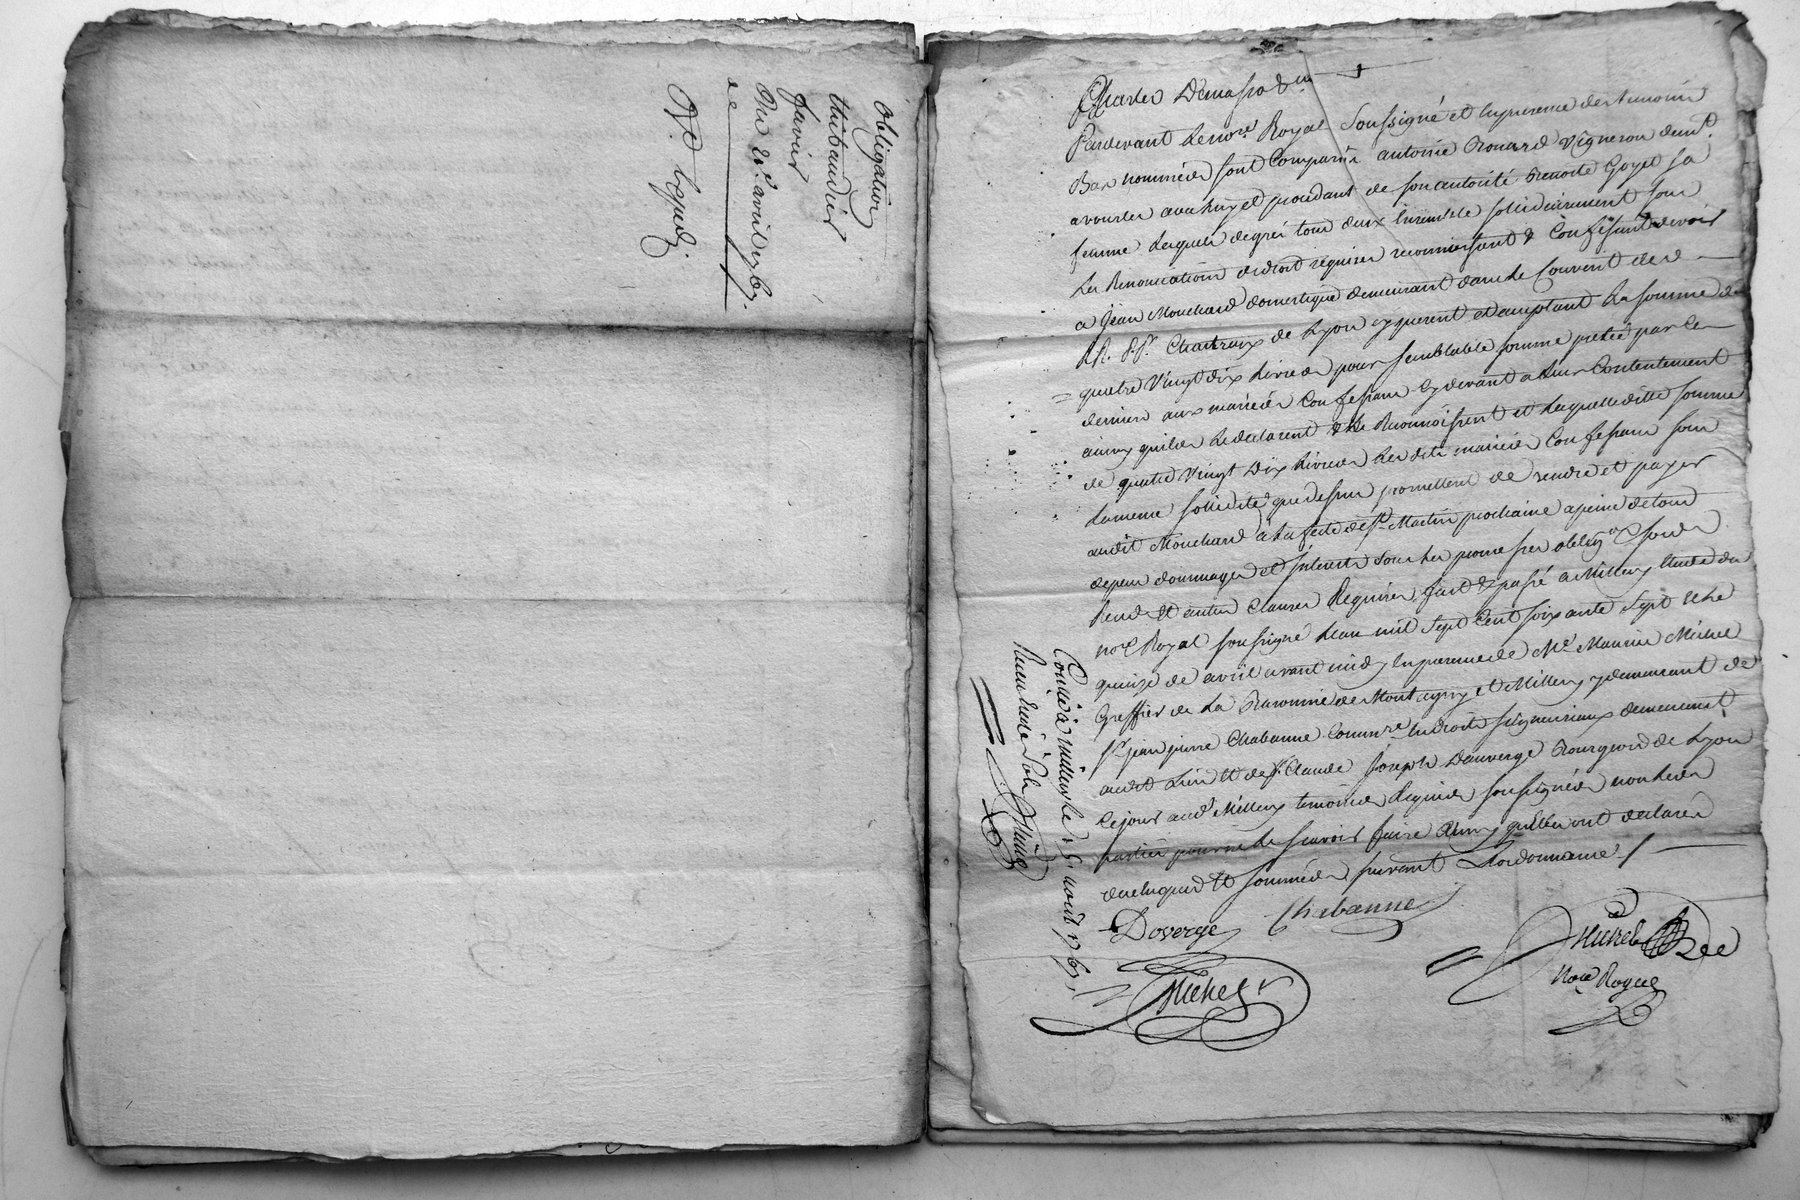 Obligation
thibaudier
favier
Du 20e avril 1767
Pardevant Le nore Royal Soussigné et en presence des temoins
Bas nommés sont Comparu antoine Brouard Vigneron demt
a vourles avec luy et procedant de son autorité Benoite Goyet sa
femme Lesquels de gré tous deux Ensemble solidairement sous
Les Renonciations de droit requises reconnoissent & Confessent devoir
a Jean Mouchard domestique demeurant dans Le Couvent de
RR. PP. Chartreux de Lyon cy present et acceptant La somme de
quatre Vingt dix Livres pour semblable somme pretée par ce
dernier aux mariés Confessans cy devant a Leur Contentement
ainsy qu'ils Le declarent & Le Reconnoissent et Laquelle ditte somme
de quatre Vingt Dix Livres Les dits mariés Confessans sous
La meme solidité que dessus promettent de rendre et payer
audit Mouchard a La fete de St Martin prochaine a peine de tous
depens dommages et interets sous Les promesses obligon
et autres Clauses Requises, fait & passé a Millery Etude du
nore Royal soussigné L'an mil sept Cent soixante sept & Le
quinze de avril avant midy En presence de Me Maurice Michel
Greffier de La Baronnie de Montagny et Millery y demeurant de
sr jean pierre Chabanne Commre En droits seigneuriaux demeurant
audit Lieu et de sr Claude Joseph Dauverge Bourgeois de Lyon
Ce jour audt Millery temoins Requis soussignés non Les
parties pour ne Le scavoir faire Ainsy qu'Elles ont declaré
de ce Enquis et sommées suivant L'ordonnance /
Doverge
Chabanne
Michel
Michel
Nore Royal
Controllé à millery le 15 avril 1767